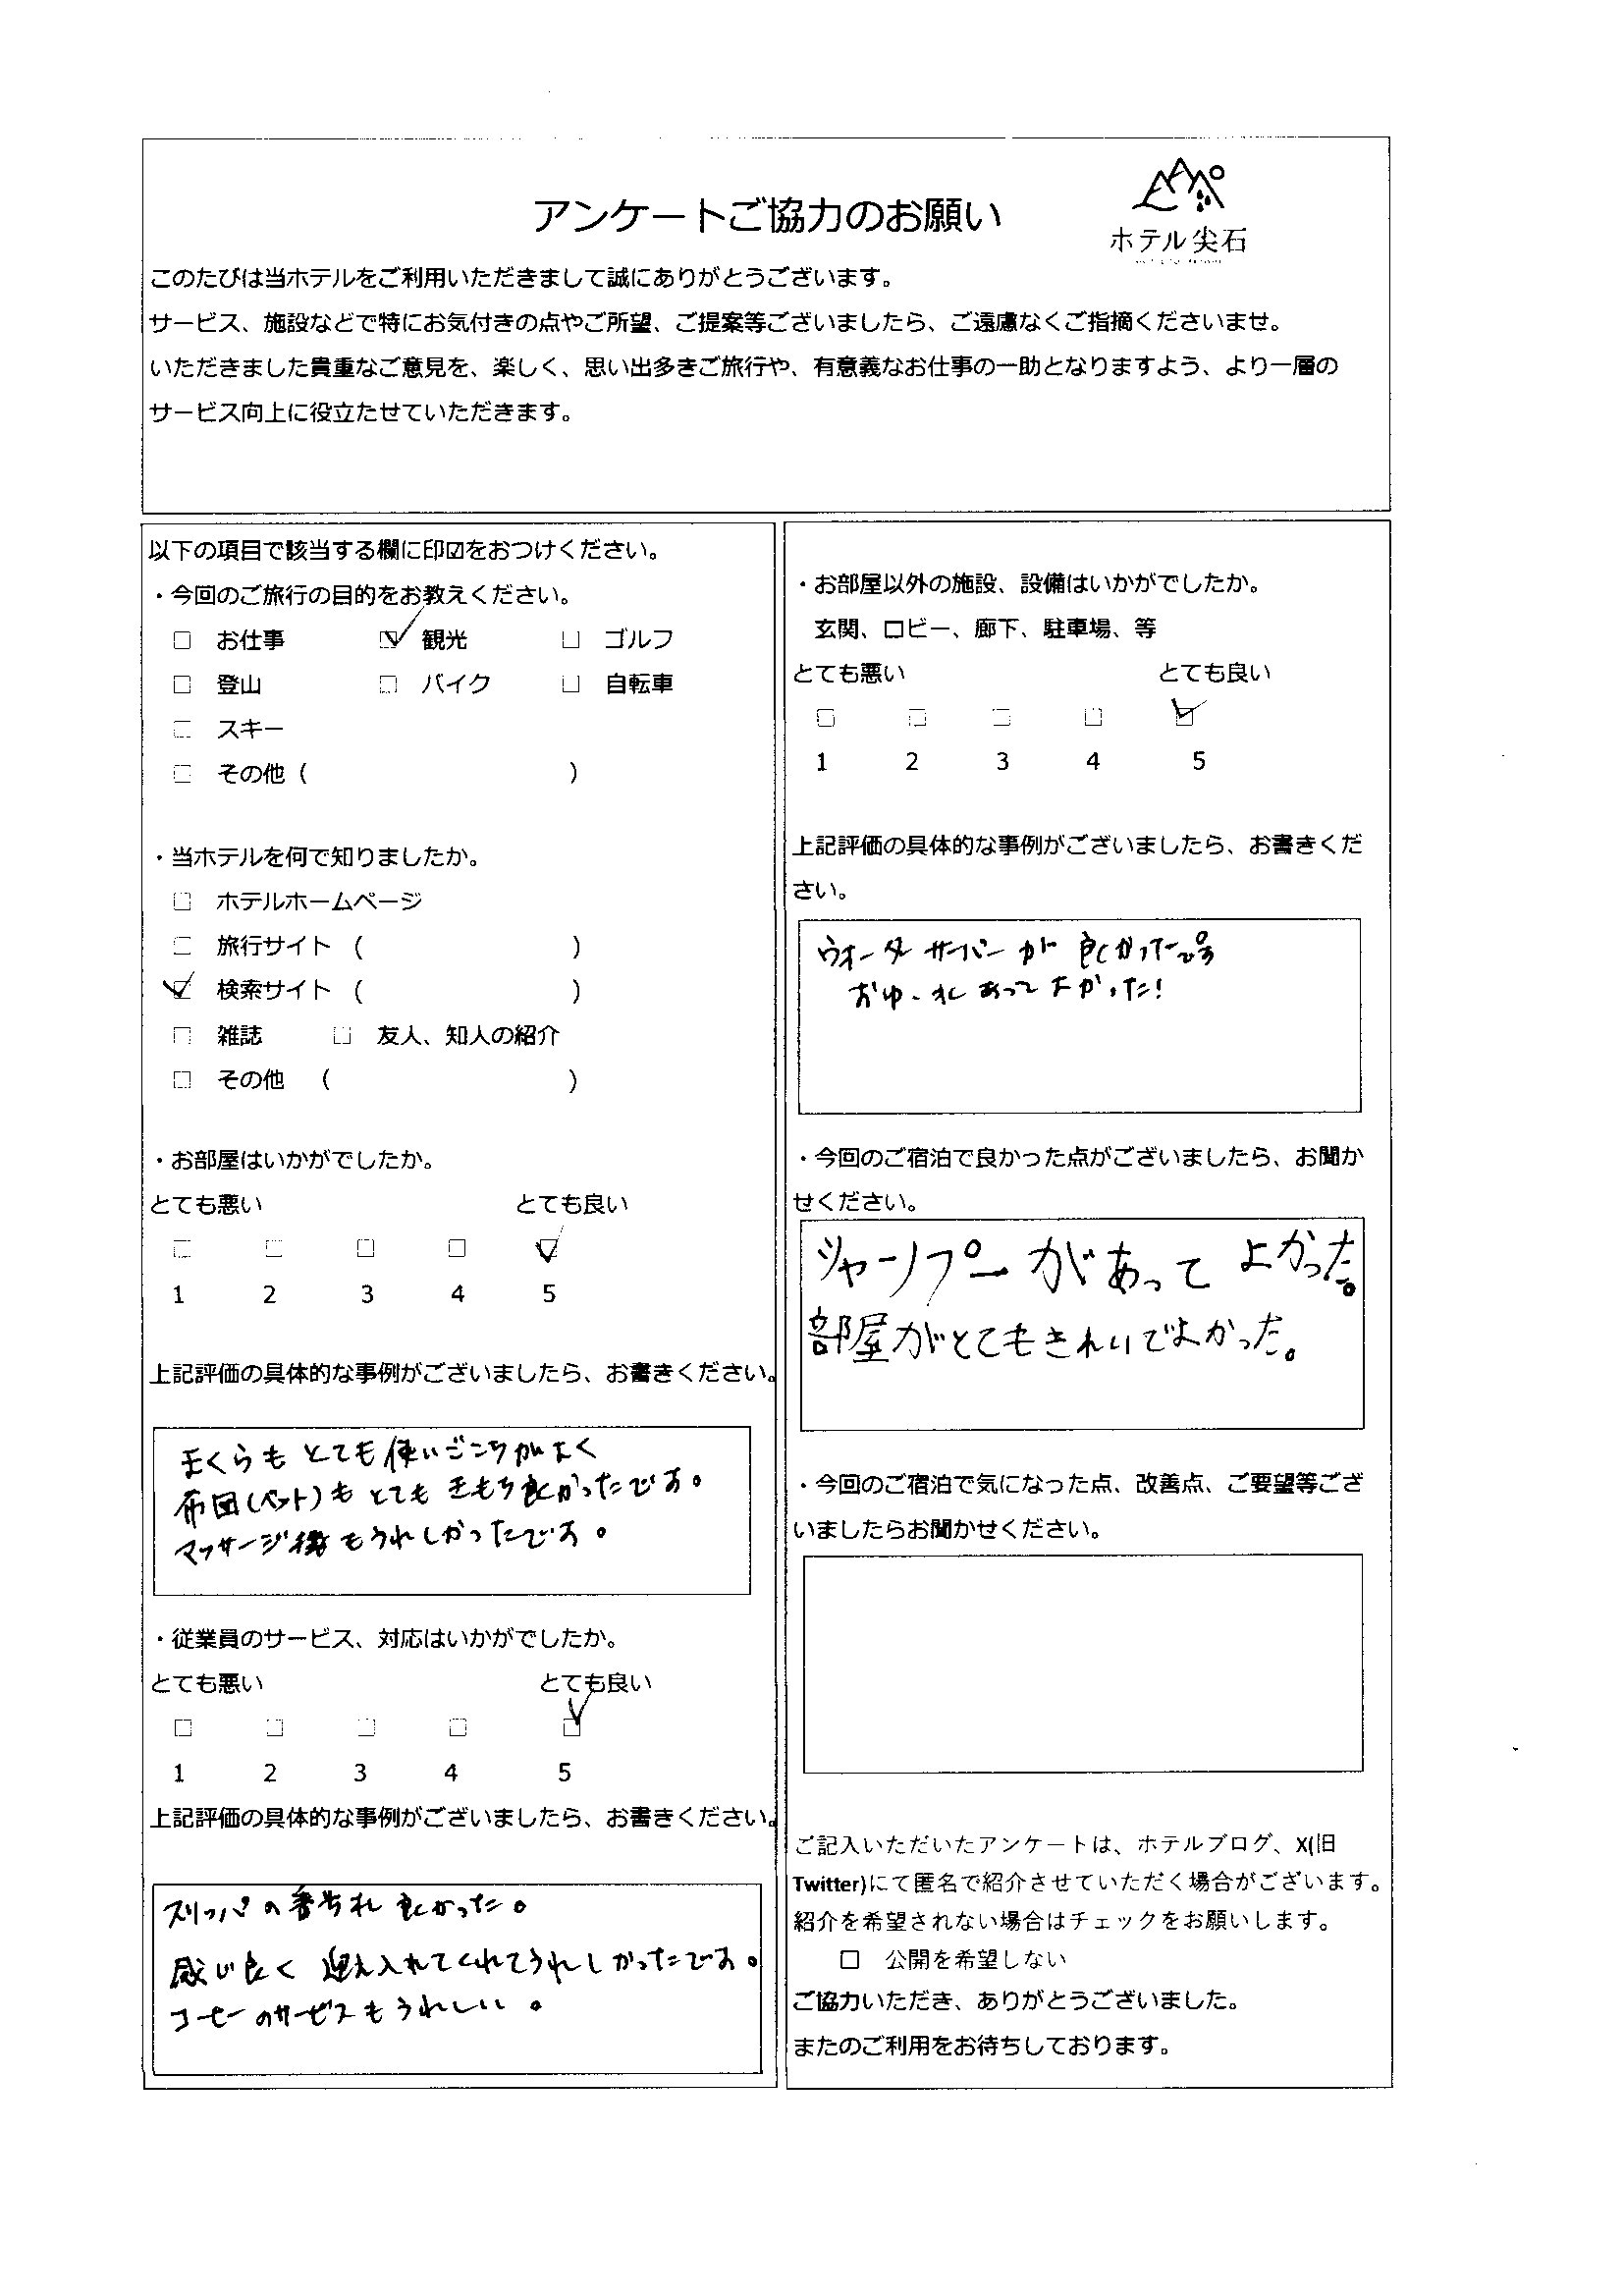 アンケートご協力のお願い
ホテル尖石
このたびは当ホテルをご利用いただきまして誠にありがとうございます。
サービス、施設などで特にお気付きの点やご所望、ご提案等ございましたら、ご遠慮なくご指摘くださいませ。
いただきました貴重なご意見を、楽しく、思い出多きご旅行や、有意義なお仕事の一助となりますよう、より一層の
サービス向上に役立たせていただきます。
以下の項目で該当する欄に印☑をおつけください。
・今回のご旅行の目的をお教えください。
□ お仕事 ☑ 観光 □ ゴルフ
□ 登山 □ バイク □ 自転車
□ スキー
□ その他 ( )
・当ホテルを何で知りましたか。
□ ホテルホームページ
□ 旅行サイト ( )
☑ 検索サイト ( )
□ 雑誌 □ 友人、知人の紹介
□ その他 ( )
・お部屋はいかがでしたか。
とても悪い とても良い
□ □ □ □ ☑
1 2 3 4 5
上記評価の具体的な事例がございましたら、お書きください。
まくらもとても使いごこちがよく
布団(ベット)もとてもきもち良かったです。
マッサージ機もうれしかったです。
・従業員のサービス、対応はいかがでしたか。
とても悪い とても良い
□ □ □ □ ☑
1 2 3 4 5
上記評価の具体的な事例がございましたら、お書きください。
スリッパの 良かった。
感じ良く 迎え入れてくれてうれしかったです。
コーヒーのサービスもうれしい。
・お部屋以外の施設、設備はいかがでしたか。
玄関、ロビー、廊下、駐車場、等
とても悪い とても良い
□ □ □ □ ☑
1 2 3 4 5
上記評価の具体的な事例がございましたら、お書きくだ
さい。
ウオーターサーバーが 良かったです
おゆ・水あってよかった!
・今回のご宿泊で良かった点がございましたら、お聞か
せください。
シャンプーがあってよかった。
部屋がとてもきれいでよかった。
・今回のご宿泊で気になった点、改善点、ご要望等ござ
いましたらお聞かせください。
ご記入いただいたアンケートは、ホテルブログ、X(旧
Twitter)にて匿名で紹介させていただく場合がございます。
紹介を希望されない場合はチェックをお願いします。
□ 公開を希望しない
ご協力いただき、ありがとうございました。
またのご利用をお待ちしております。